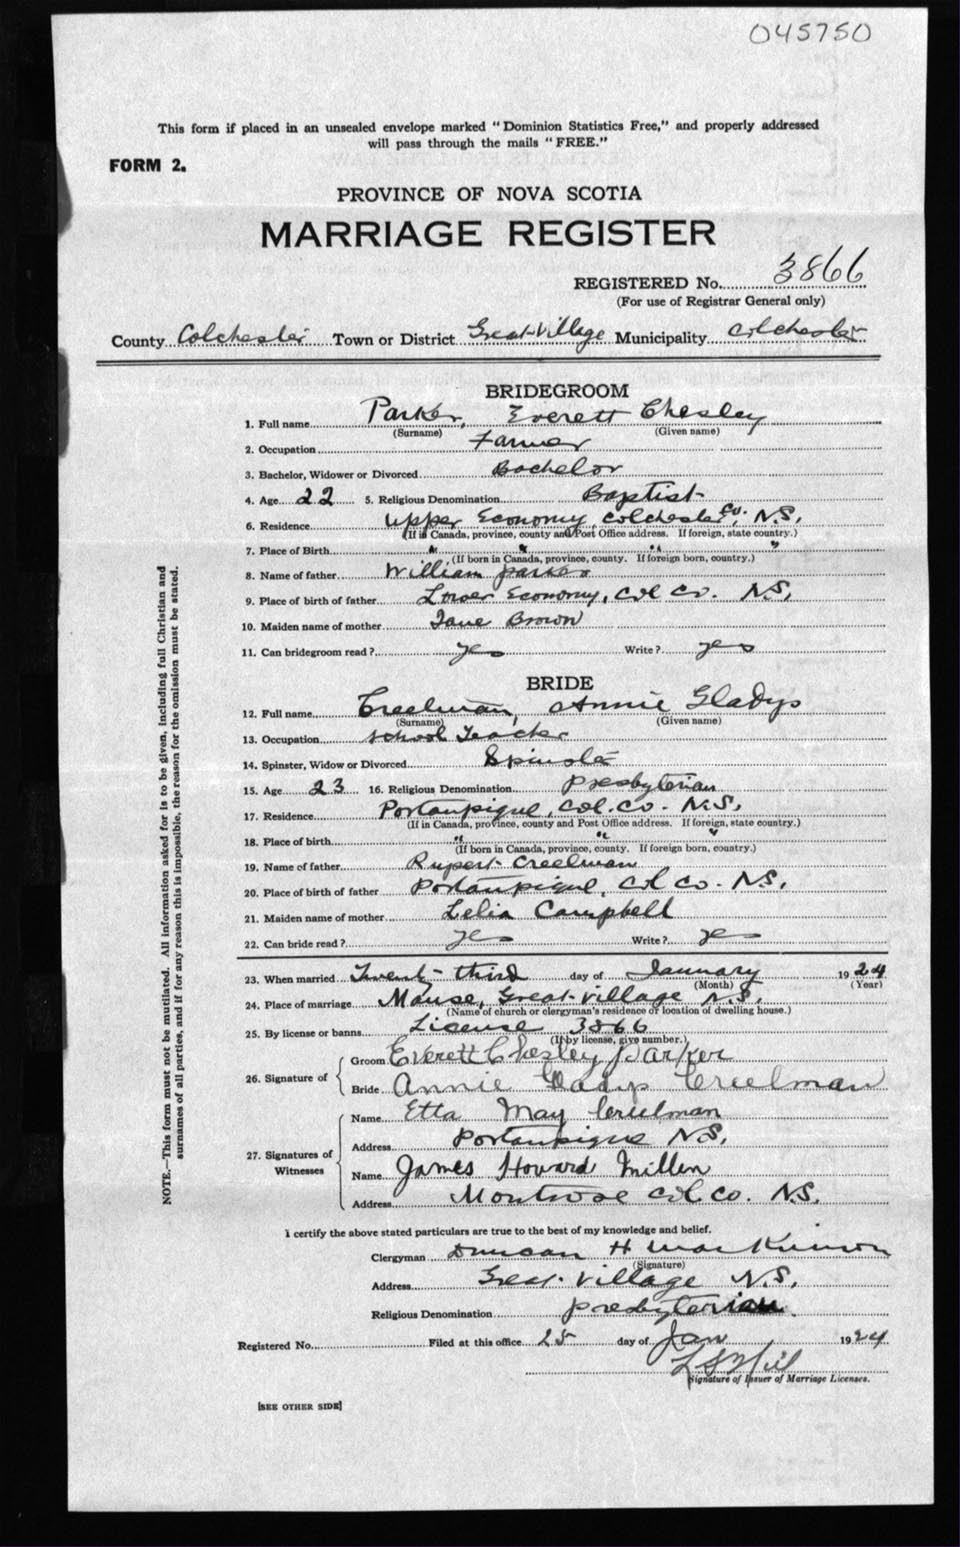 045750
This form if placed in an unsealed envelope marked "Dominion Statistics Free," and properly addressed
will pass through the mails "FREE."
FORM 2.
PROVINCE OF NOVA SCOTIA
MARRIAGE REGISTER
REGISTERED No. 3866
(For use of Registrar General only)
County Colchester Town or District Great Village Municipality Colchester
BRIDEGROOM
1. Full name Parker, Everett Chesley
(Surname) (Given name)
2. Occupation Farmer
3. Bachelor, Widower or Divorced Bachelor
4. Age 22 5. Religious Denomination Baptist
6. Residence Upper Economy, Colchester Co. N.S,
(If in Canada, province, county and Post Office address. If foreign, state country.)
7. Place of Birth " " " "
(If born in Canada, province, county. If foreign born, country.)
8. Name of father William Parker
9. Place of birth of father Lower Economy, Col Co. N.S,
10. Maiden name of mother Jane Brown
11. Can bridegroom read? yes Write? yes
BRIDE
12. Full name Creelman, Annie Gladys
(Surname) (Given name)
13. Occupation School Teacher
14. Spinster, Widow or Divorced Spinster
15. Age 23 16. Religious Denomination Presbyterian
17. Residence Portaupique, Col. Co. N.S,
(If in Canada, province, county and Post Office address. If foreign, state country.)
18. Place of birth " " "
(If born in Canada, province, county. If foreign born, country.)
19. Name of father Rupert Creelman
20. Place of birth of father Portaupique, Col Co. N.S,
21. Maiden name of mother Lelia Campbell
22. Can bride read? yes Write? yes
23. When married Twenty-third day of January 1924
(Month) (Year)
24. Place of marriage Manse, Great Village N.S.
(Name of church or clergyman's residence or location of dwelling house.)
25. By license or banns License 3866
(If by license, give number.)
26. Signature of Groom Everett Chesley Parker
Bride Annie Gladys Creelman
27. Signatures of Witnesses Name Etta May Creelman
Address Portaupique N.S,
Name James Howard Millen
Address Montrose Col. Co. N.S.
I certify the above stated particulars are true to the best of my knowledge and belief.
Clergyman Duncan H MacKinnon
(Signature)
Address Great Village N.S,
Religious Denomination Presbyterian
Registered No. Filed at this office 25 day of Jan 1924
Signature of Issuer of Marriage Licenses.
[SEE OTHER SIDE]
NOTE.—This form must not be mutilated. All information asked for is to be given, including full Christian and
surnames of all parties, and if for any reason this is impossible, the reason for the omission must be stated.